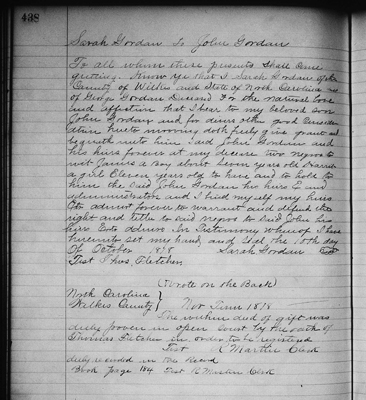 438
Sarah Gordan To John Gordan
To all whom these presents shall come
greeting. Know ye that I Sarah Gordan of the
County of Wilkes and State of North Carolina
of George Gordan Deceased For the natural love
and affection that I bear to my beloved son
John Gordan and for divers other good
doth freely give grant and
bequeath unto him Said John Gordan and
his heirs forever at my decease two negros to
wit James a boy about Seven years old
a girl Eleven years old to have and to hold to
him the Said John Gordan his heirs
administrators and I bind myself my heirs
forever to warrant and defend the
right and title to Said negros to Said John his
heirs In Testimony whereof I have
hereunto Set my hand and Seal the 10th day
Of October Sarah Gordan
Test Thos Fletcher
(Wrote on the Back)
North Carolina }
Wilkes County } Nov Term 1818
The within deed of gift was
duly proven in open Court by the oath of
Thomas Fletcher registered
Test R Martin Clerk
duly recorded in the Record
Book page 184 Test R Martin Clerk